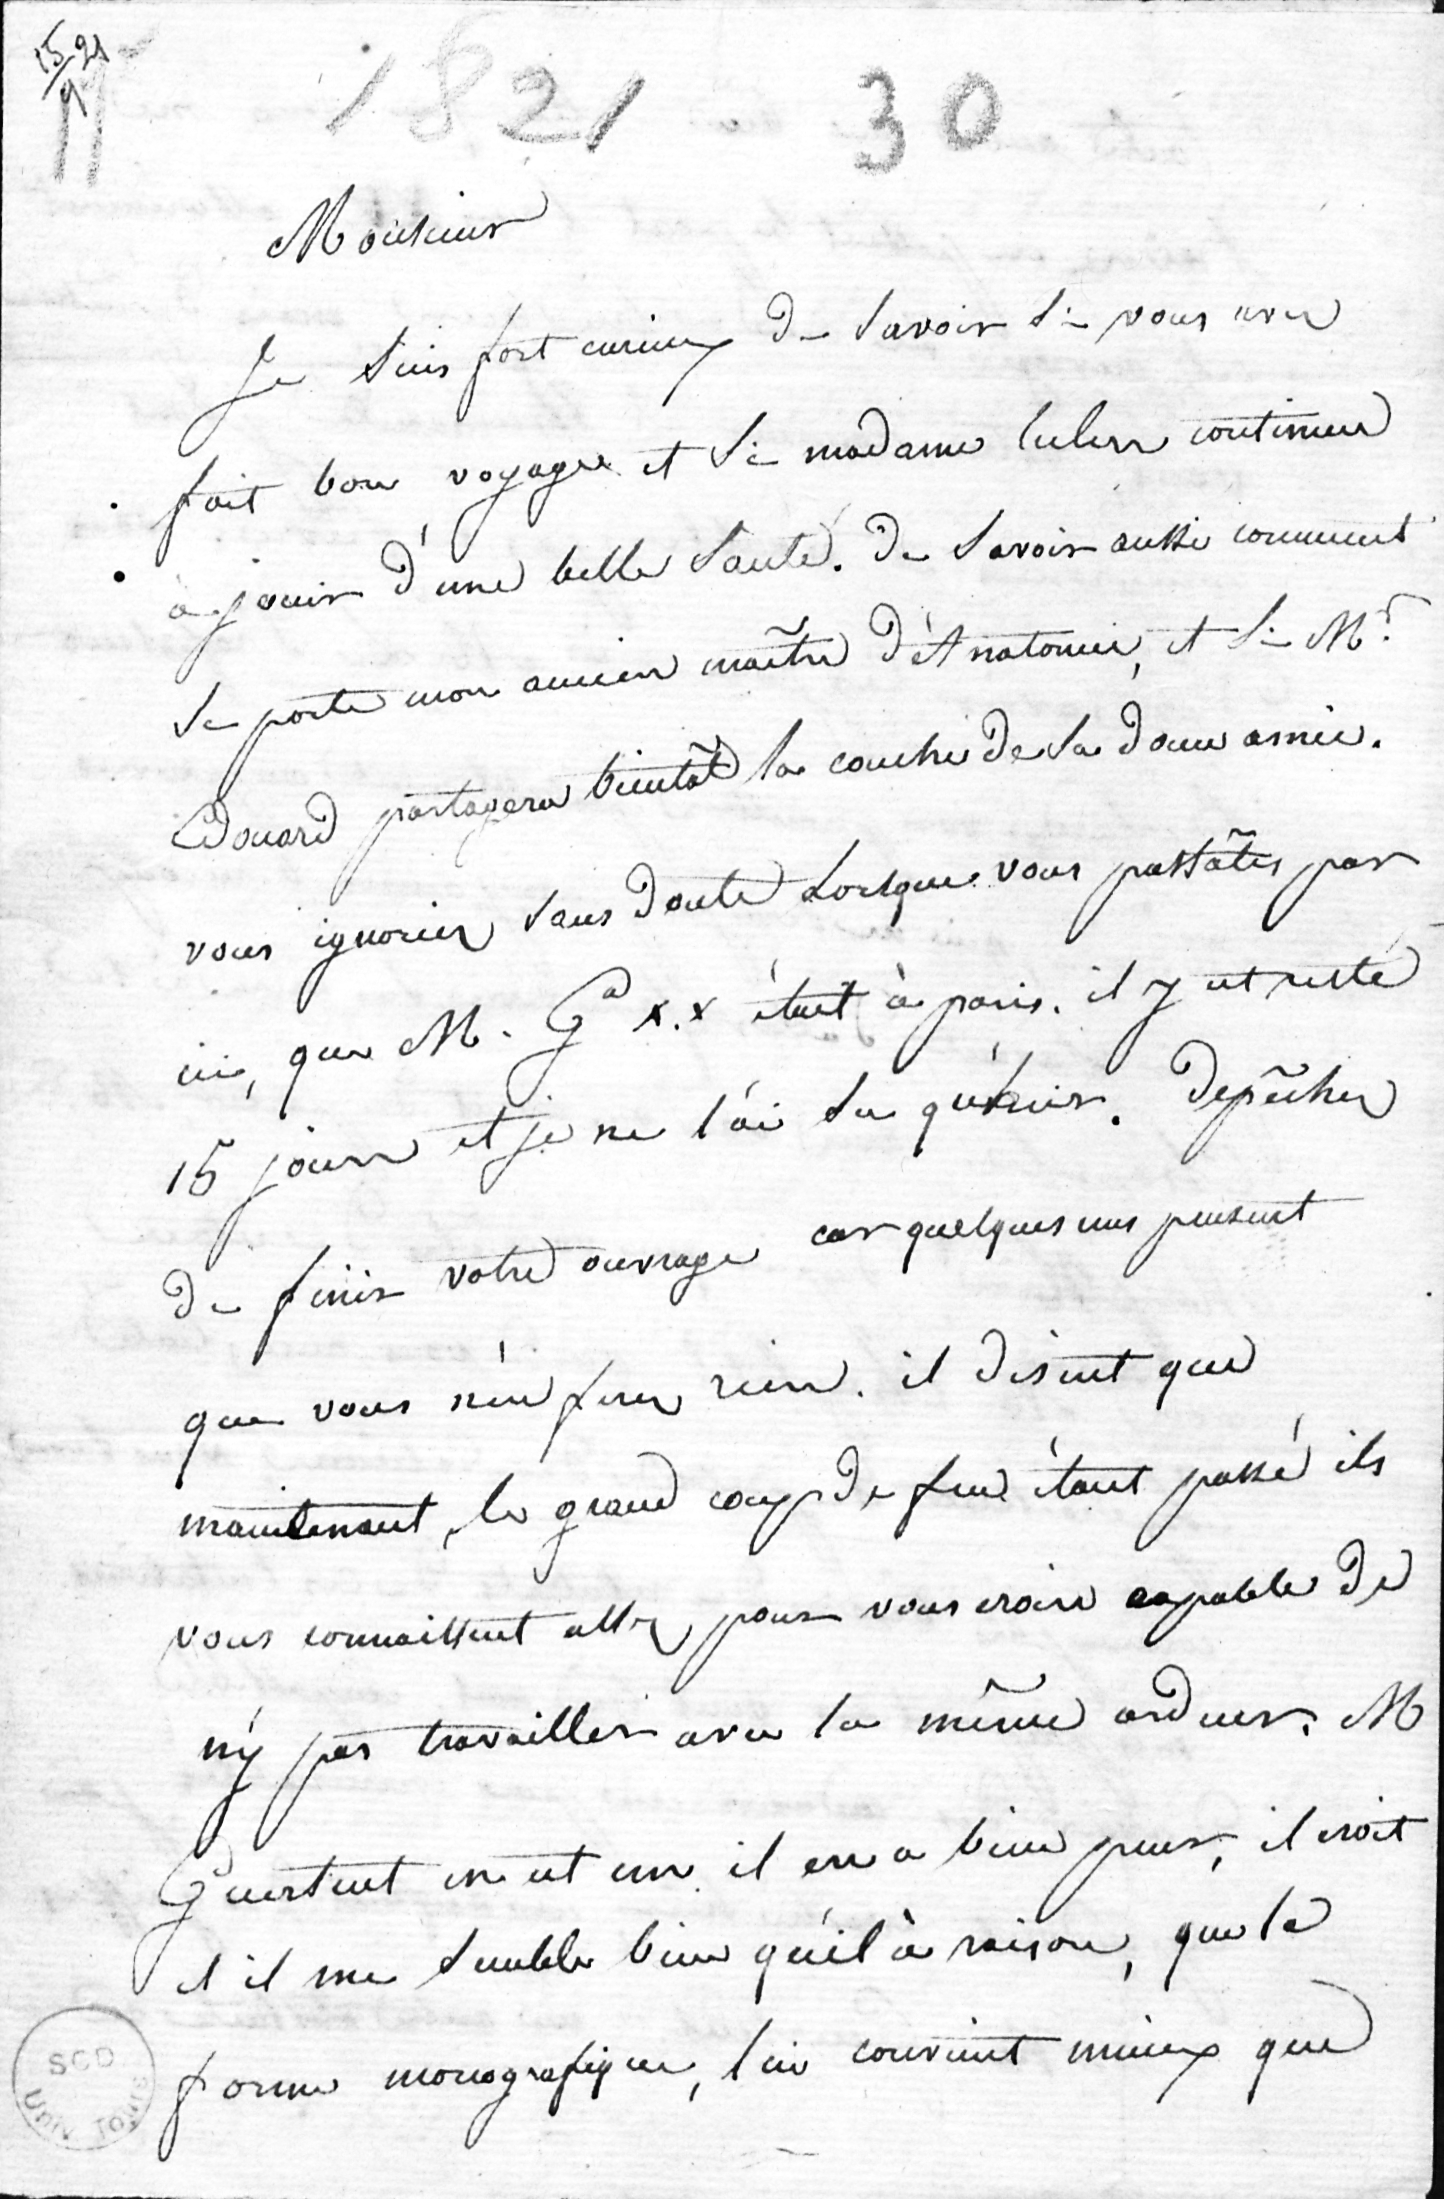 15/9 21
1821 30
Monsieur
Je suis fort curieux de savoir si vous avez
fait bon voyage et si madame continue
à jouir d'une belle santé. de savoir aussi comment
se porte mon ancien maître d'Anatomie, et si Mr.
Edouard partagera bientôt la couche de sa douce amie.
vous ignoriez sans doute lorsque vous passâtes par
ici, que M. Gd x.x était à paris. il y est resté
15 jours et je ne l'ai su qu'hier. depêchez
de finir votre ouvrage car quelques uns pensent
que vous n'en ferez rien. il disent que
maintenant, le grand coup de feu étant passé ils
vous connaissent assez pour vous croire capable de
n'y pas travailler avec la même ardeur. M
Guersent en est un il en a bien peur, il croit
et il me semble bien qu'il à raison, que la
forme monografique, lui convient mieux que
SCD
Univ. Tours